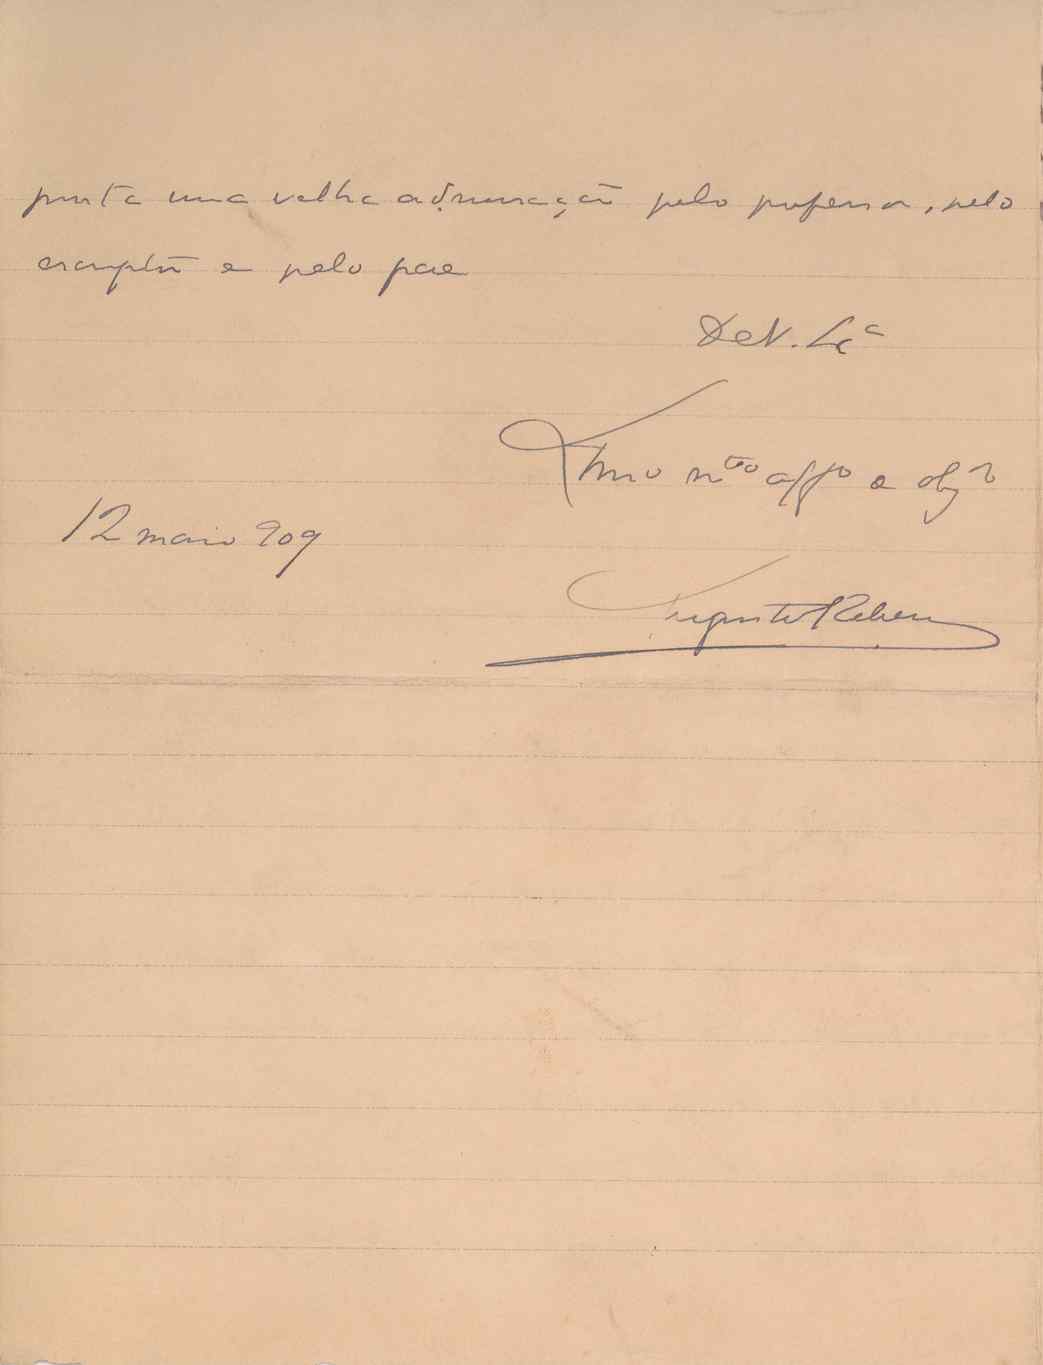 presta uma velha admiração pelo professor, pelo
e pelo pae
De V. Ex.ª
Amo mto affo e obgo
12 maio 909
Augusto Ribeiro